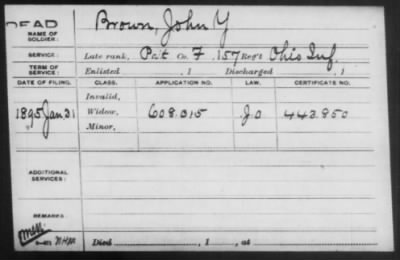 DEAD
NAME OF SOLDIER: Brown, John Y
SERVICE: Late rank, Pvt Co. F, 157 Reg't Ohio Inf.
TERM OF SERVICE: Enlisted , 1 Discharged , 1
DATE OF FILING. CLASS. APPLICATION NO. LAW. CERTIFICATE NO.
Invalid,
1895 Jan 31 Widow, 608.015 J.O 443.850
Minor,
ADDITIONAL SERVICES:
REMARKS:
Died , 1 , at